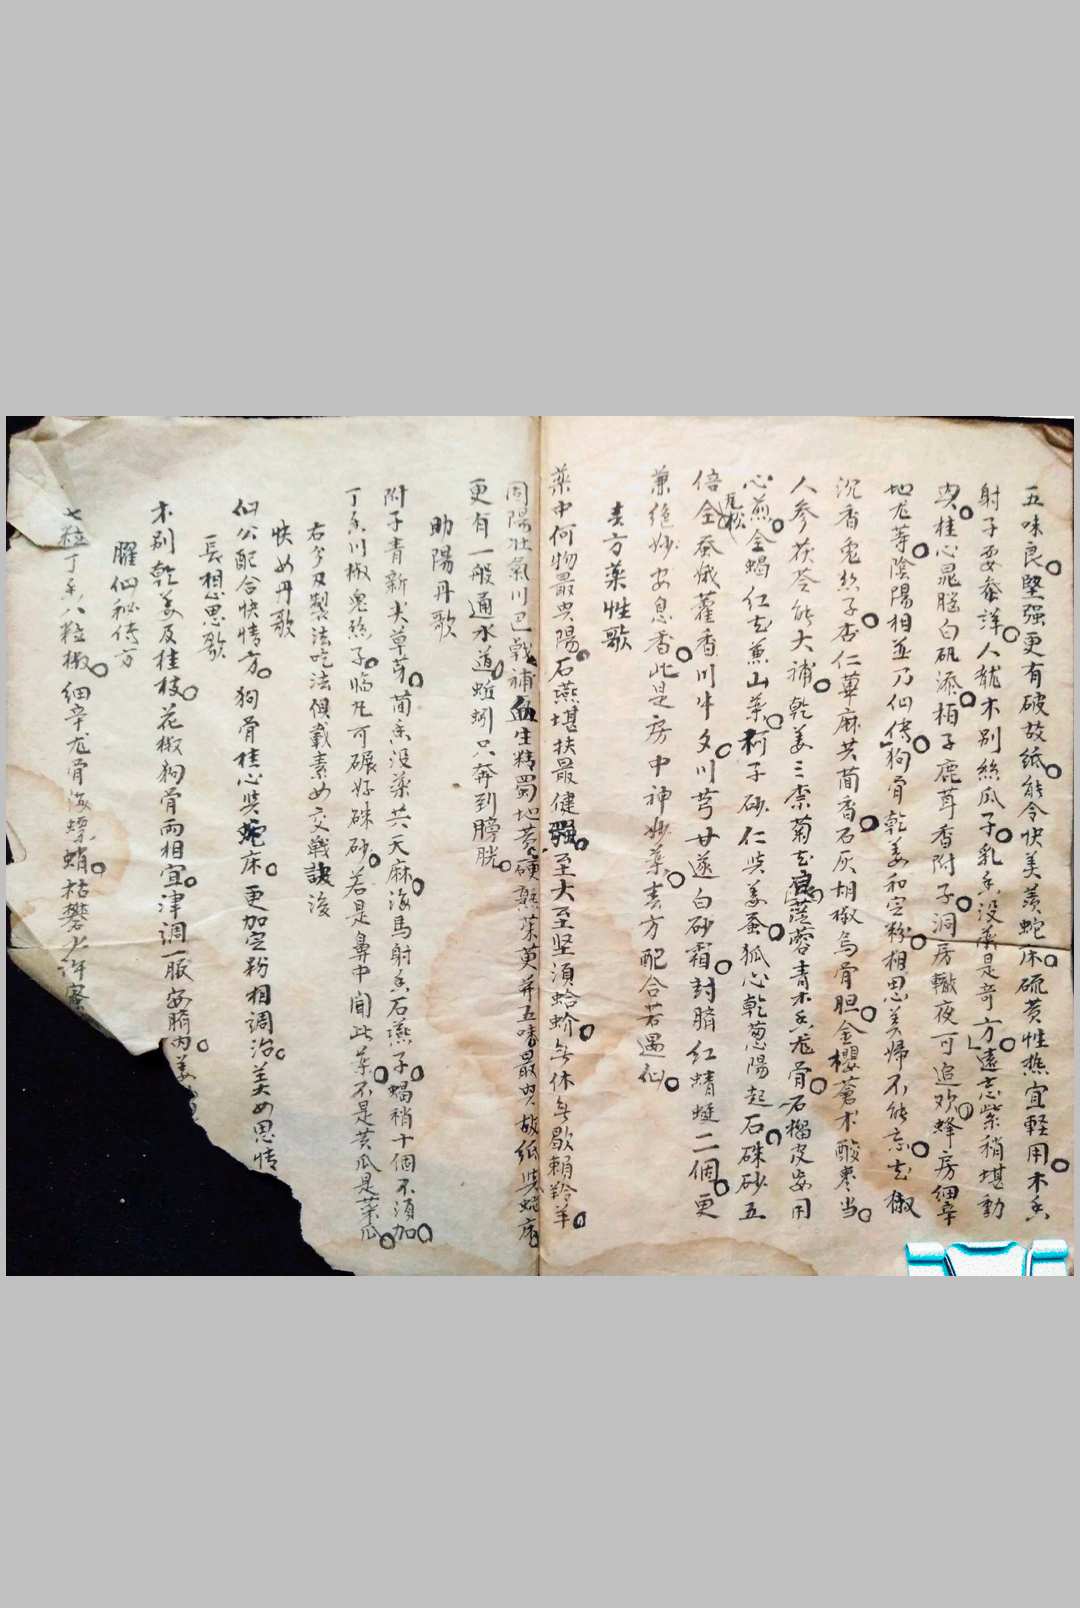 五味良堅强更有破故紙能令快美羨蛇床硫黄性热宜軽用木香
射子要參詳人龍木别絲瓜子乳香没薬是奇方遠志紫稍堪動
與桂心晁脳白矾添栢子鹿茸香附子洞房徹夜可追欢蜂房細辛
地龙等陰陽相並乃仙傳狗骨乾姜和定粉相思美婦不能忘花椒
沉香兔絲子杏仁草麻共茴香石灰胡椒烏骨胆金櫻蒼术酸棗当
人参茯苓能大補乾姜三柰菊花良蓯蓉青木香龙骨石榴皮安用
心煎瓦松全蝎红花蕉山薬柯子砂仁與姜蚕狐心乾葱陽起石硃砂五
倍全蚕娥藿香川牛夕川芎甘遂白砂霜封臍红蜻蜓二個更
兼绝妙安息香此是房中神妙薬春方配合若遇仙
春方薬性歌
薬中何物最興陽石燕堪扶最健强至大至坚須蛤蚧無休無歇賴羚羊
固陽壮氣川巴戟補血生精蜀地黄硬熱茱萸并五味最興故紙與蛇床
更有一般通水道蚯蚓只奔到膀胱
助陽丹歌
附子青新尖草芽茴香没薬共天麻海馬射香石燕子蝎稍十個不須加
丁香川椒兔絲子临凡可碾好硃砂若是鼻中闻此薬不是苦瓜是菜瓜
右分及製法吃法俱載素女交戰訣後
快女丹歌
仙公配合快情方狗骨桂心與蛇床更加定粉相調治美女思情
長相思歌
木别乾姜及桂枝花椒狗骨两相宜津調一服安臍内美
臞仙秘传方
七粒丁香八粒椒細辛龙骨海螵蛸枯礬少许蜜